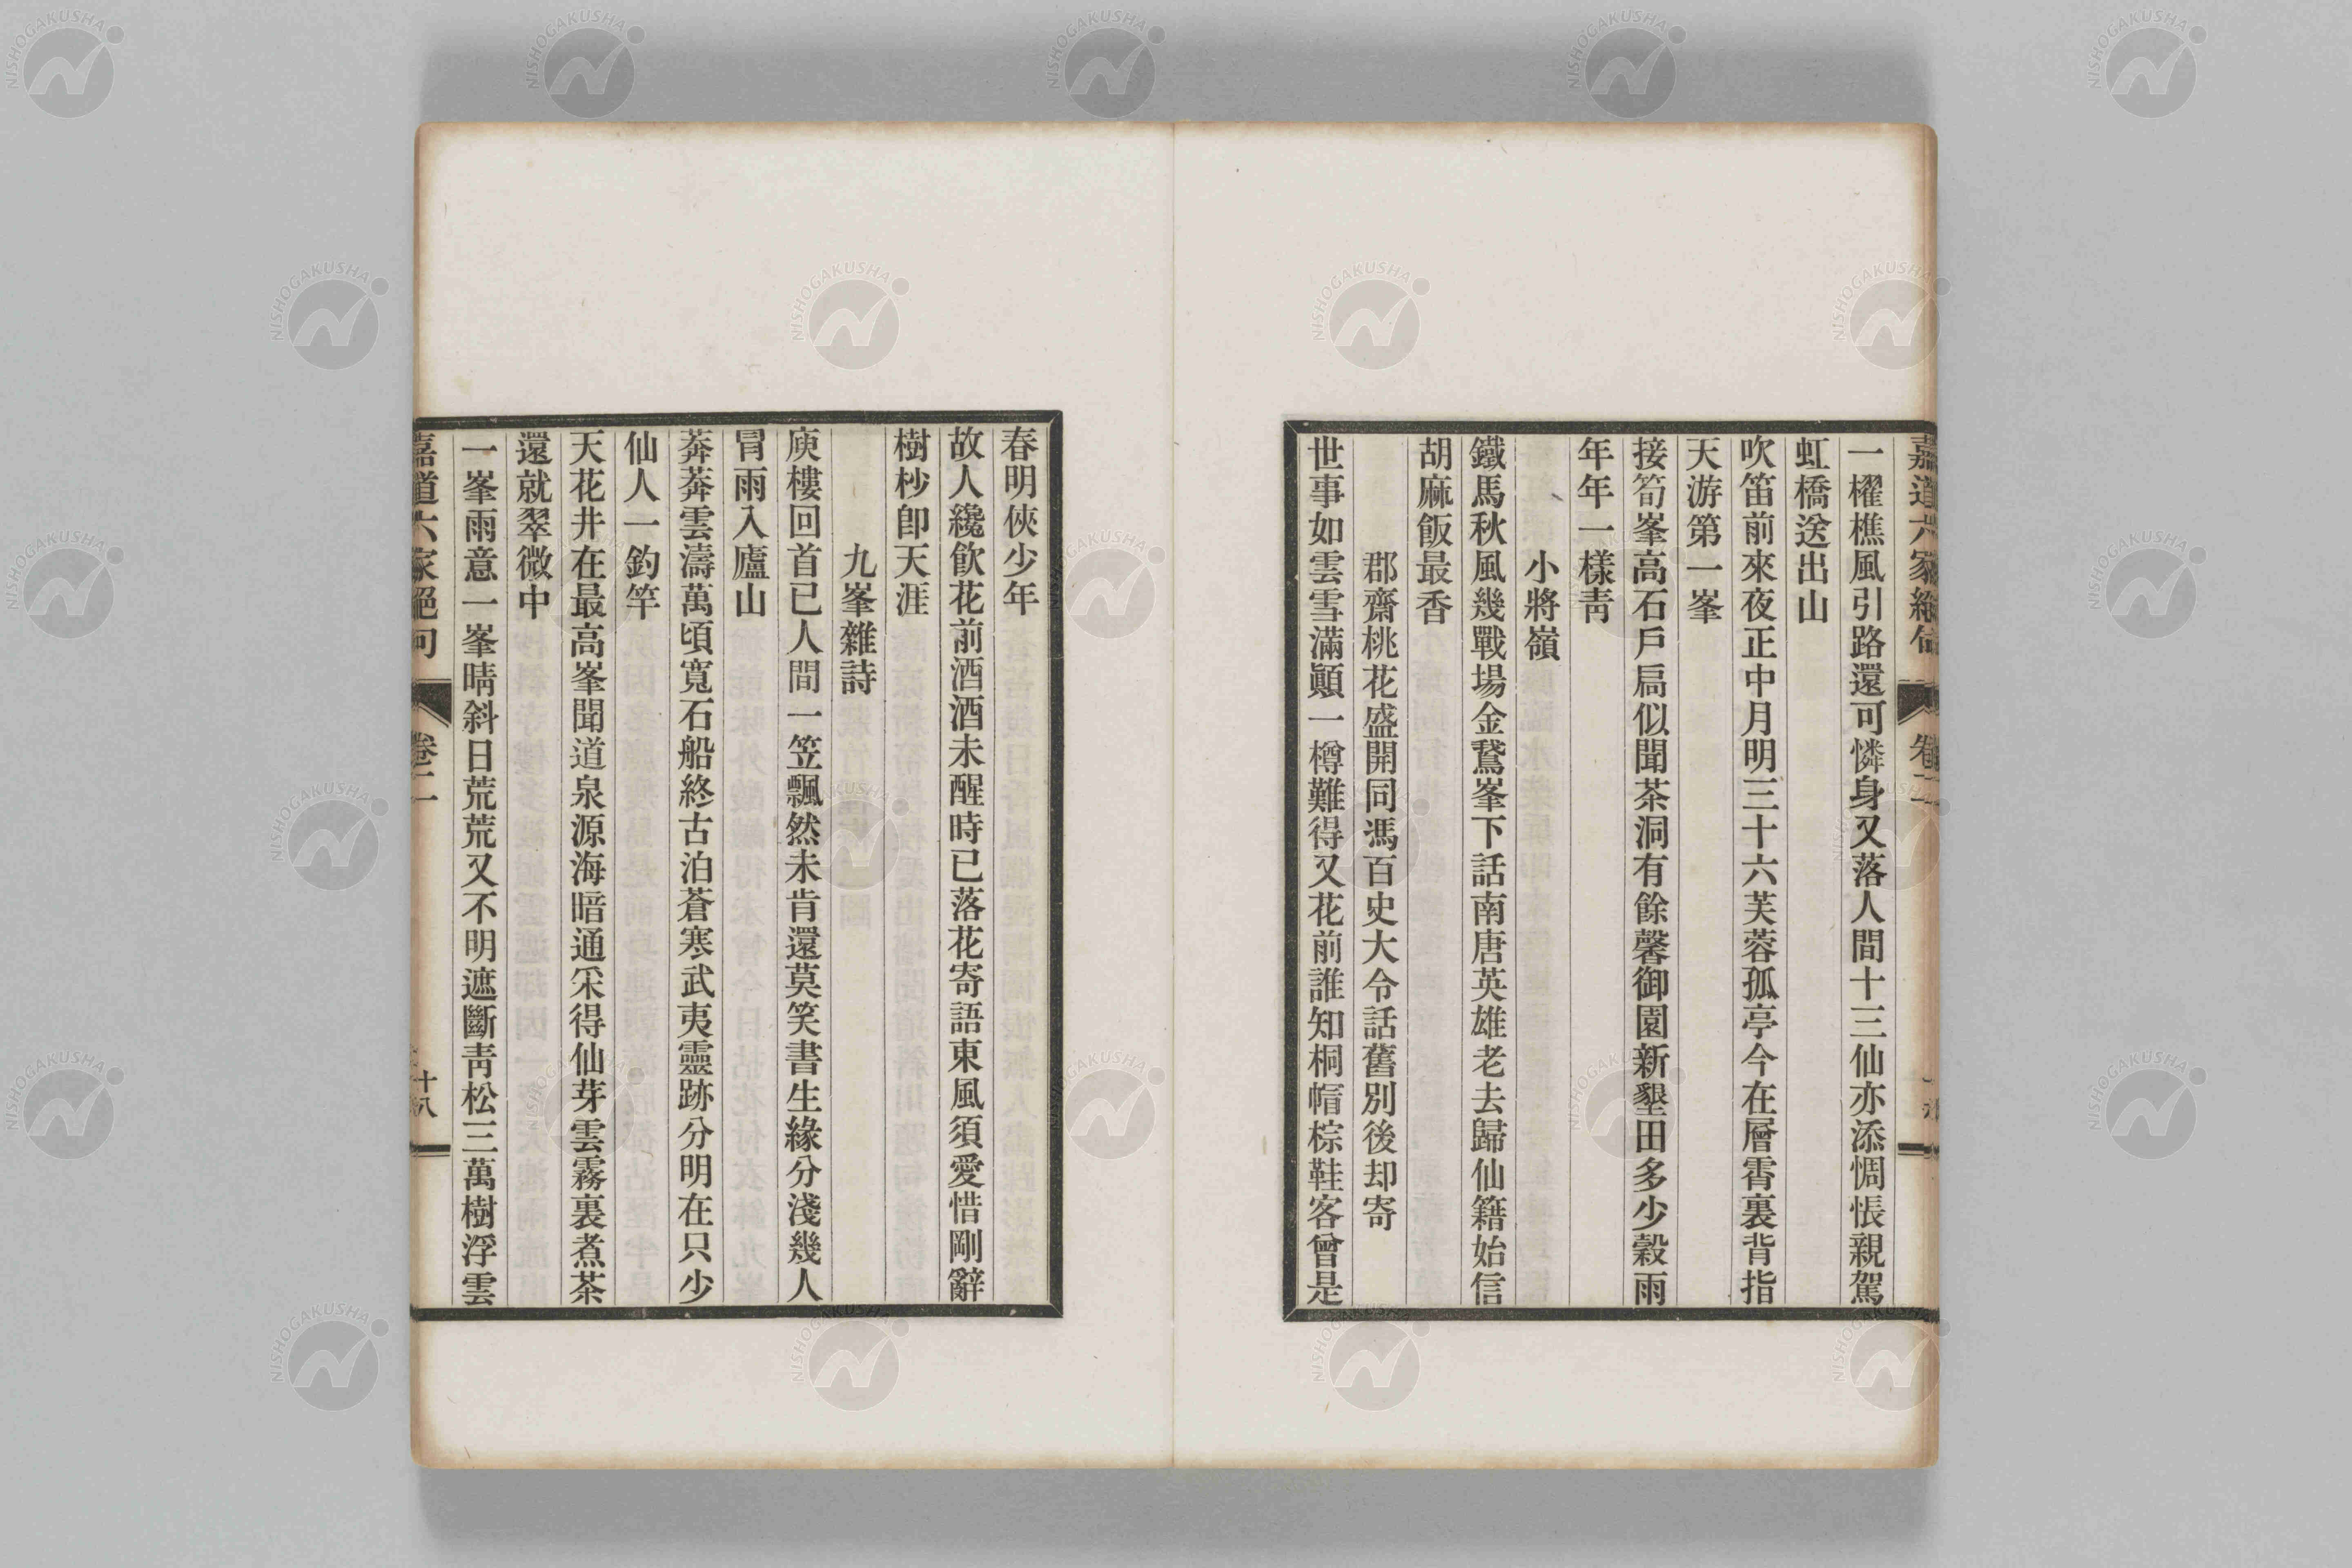 嘉道六家絕句
卷二
一櫂樵風引路還可憐身又落人間十三仙亦添惆悵親駕
虹橋送出山
吹笛前來夜正中月明三十六芙蓉孤亭今在層霄裏背指
天游第一峯
接筍峯高石戶扃似聞茶洞有餘馨御園新墾田多少穀雨
年年一樣靑
小將嶺
鐵馬秋風幾戰場金鵞峯下話南唐英雄老去歸仙籍始信
胡麻飯最香
郡齋桃花盛開同馮百史大令話舊別後却寄
世事如雲雪滿顚一樽難得又花前誰知桐帽棕鞋客曾是
春明俠少年
故人纔飲花前酒酒未醒時已落花寄語東風須愛惜剛辭
樹杪卽天涯
九峯雜詩
庾樓回首已人間一笠飄然未肯還莫笑書生緣分淺幾人
冐雨入廬山
莾莾雲濤萬頃寬石船終古泊蒼寒武夷靈跡分明在只少
仙人一釣竿
天花井在最高峯聞道泉源海暗通采得仙芽雲霧裏煮茶
還就翠微中
一峯雨意一峯晴斜日荒荒又不明遮斷靑松三萬樹浮雲
嘉道六家絕句
卷二
十八
NISHOGAKUSHA